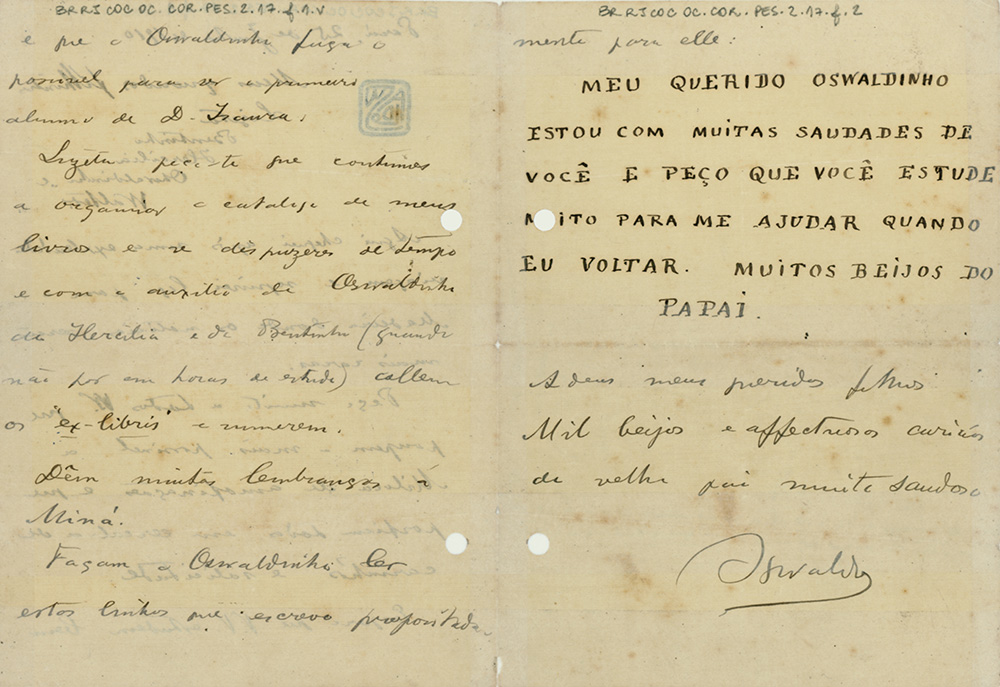 BR RJ COC OC. COR. PES. 2. 17. f. 1. V
e que o Oswaldinho faça o
possivel para ser o primeiro
alumno de D. Isaura.
Lizeta que continues
a organisar o catalogo de meus
livros e se despuzeres de tempo
e com o auxilio de Oswaldinho
da Hercilia e do Bentinho (quando
não for em horas de estudo) collem
os "ex-libris" e numerem.
Dêm muitas lembranças á
Miná.
Façam o Oswaldinho ler
estas linhas que escrevo propositada-
BR RJ COC OC. COR. PES. 2. 17. f. 2
mente para elle:
MEU QUERIDO OSWALDINHO
ESTOU COM MUITAS SAUDADES DE
VOCÊ E PEÇO QUE VOCÊ ESTUDE
MUITO PARA ME AJUDAR QUANDO
EU VOLTAR. MUITOS BEIJOS DO
PAPAI.
Adeus meus queridos filhos
Mil beijos e affectuosos carinhos
do velho pai muito saudoso
Oswaldo